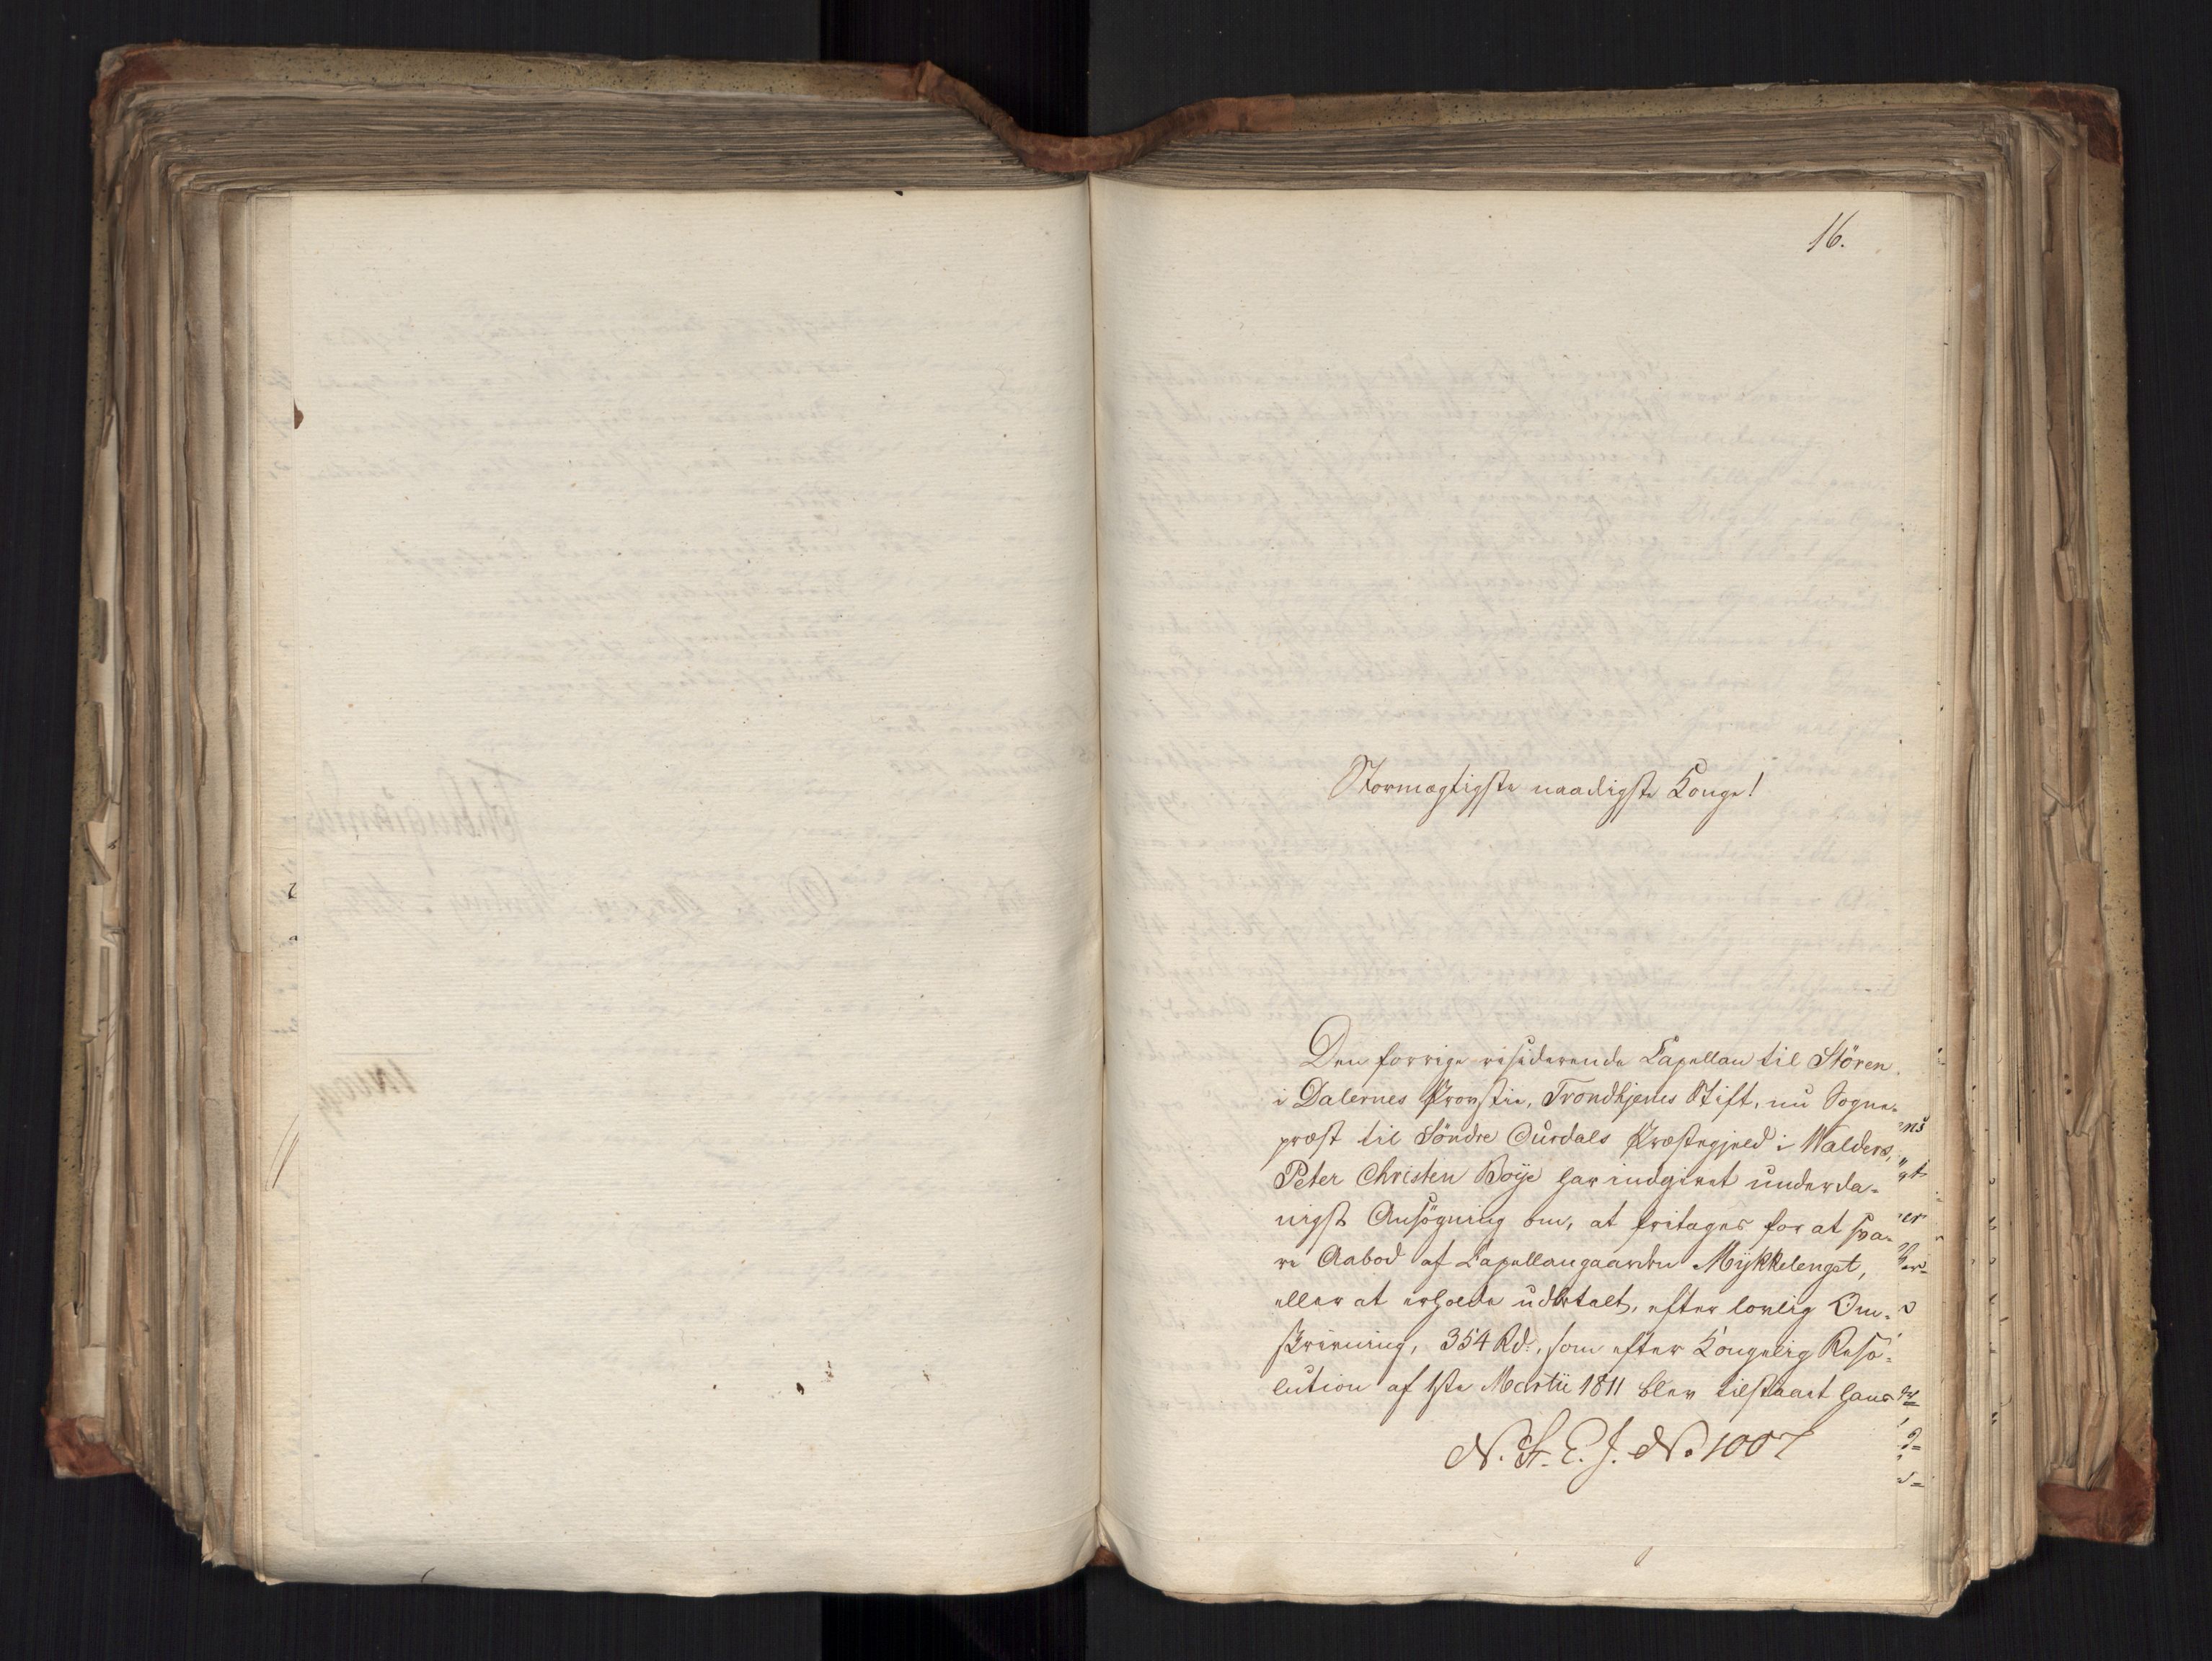 16.
Stormægtigste naadigste Konge!
Den forrige residerende Capellan til Stören
i Dalernes Provstie, Trondhjems Stift, nu Sogne-
præst til Söndre Ourdals Præstegjeld i Walders,
Peter Christen Boÿe har indgivet underda-
nigst Ansögning om, at fritages for at sva-
re Aabod af Capellangaarden Mÿkkelenget,
eller at erholde udbetalt, efter lovlig Om-
skrivning, 354 Rd:, som efter Kongelig Reso-
lution af 1ste Martii 1811 blev tilstaaet hans
N. St. E. J. No 1007